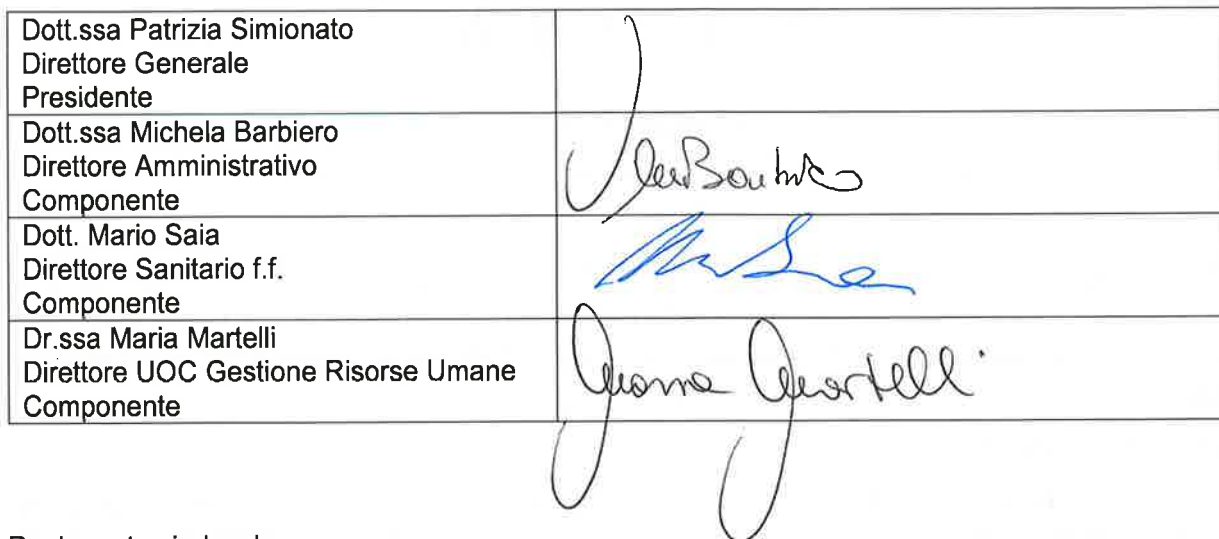 Dott.ssa Patrizia Simionato
Direttore Generale
Presidente
Dott.ssa Michela Barbiero
Direttore Amministrativo
Componente
Dott. Mario Saia
Direttore Sanitario f.f.
Componente
Dr.ssa Maria Martelli
Direttore UOC Gestione Risorse Umane
Componente
Martelli